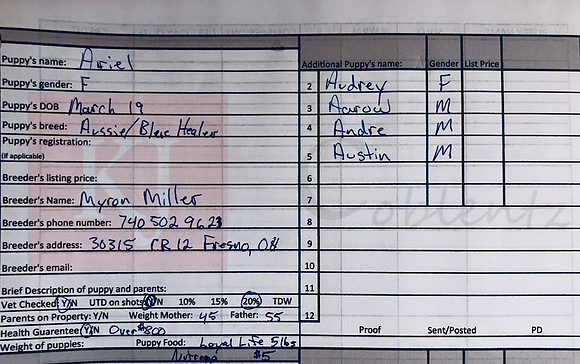 Puppy's name: Ariel
Additional Puppy's name: Gender List Price
Puppy's gender: F
2 Audrey F
Puppy's DOB March 19
3 Aarow M
Puppy's breed: Aussie/Blue Healer
4 Andre M
Puppy's registration:
(if applicable)
5 Austin M
Breeder's listing price:
6
Breeder's Name: Myron Miller
7
Breeder's phone number: 740 502 9623
8
Coblentz
Breeder's address: 30315 CR 12 Fresno, OH
9
Breeder's email:
10
Brief Description of puppy and parents:
11
Vet Checked Y/N UTD on shots Y/N 10% 15% 20% TDW
Parents on Property: Y/N Weight Mother: 45 Father: 55
12
Health Guarantee Y/N Over $800
Proof Sent/Posted PD
Weight of puppies: Puppy Food: Loyal Life 5 lbs
Nutrena $5